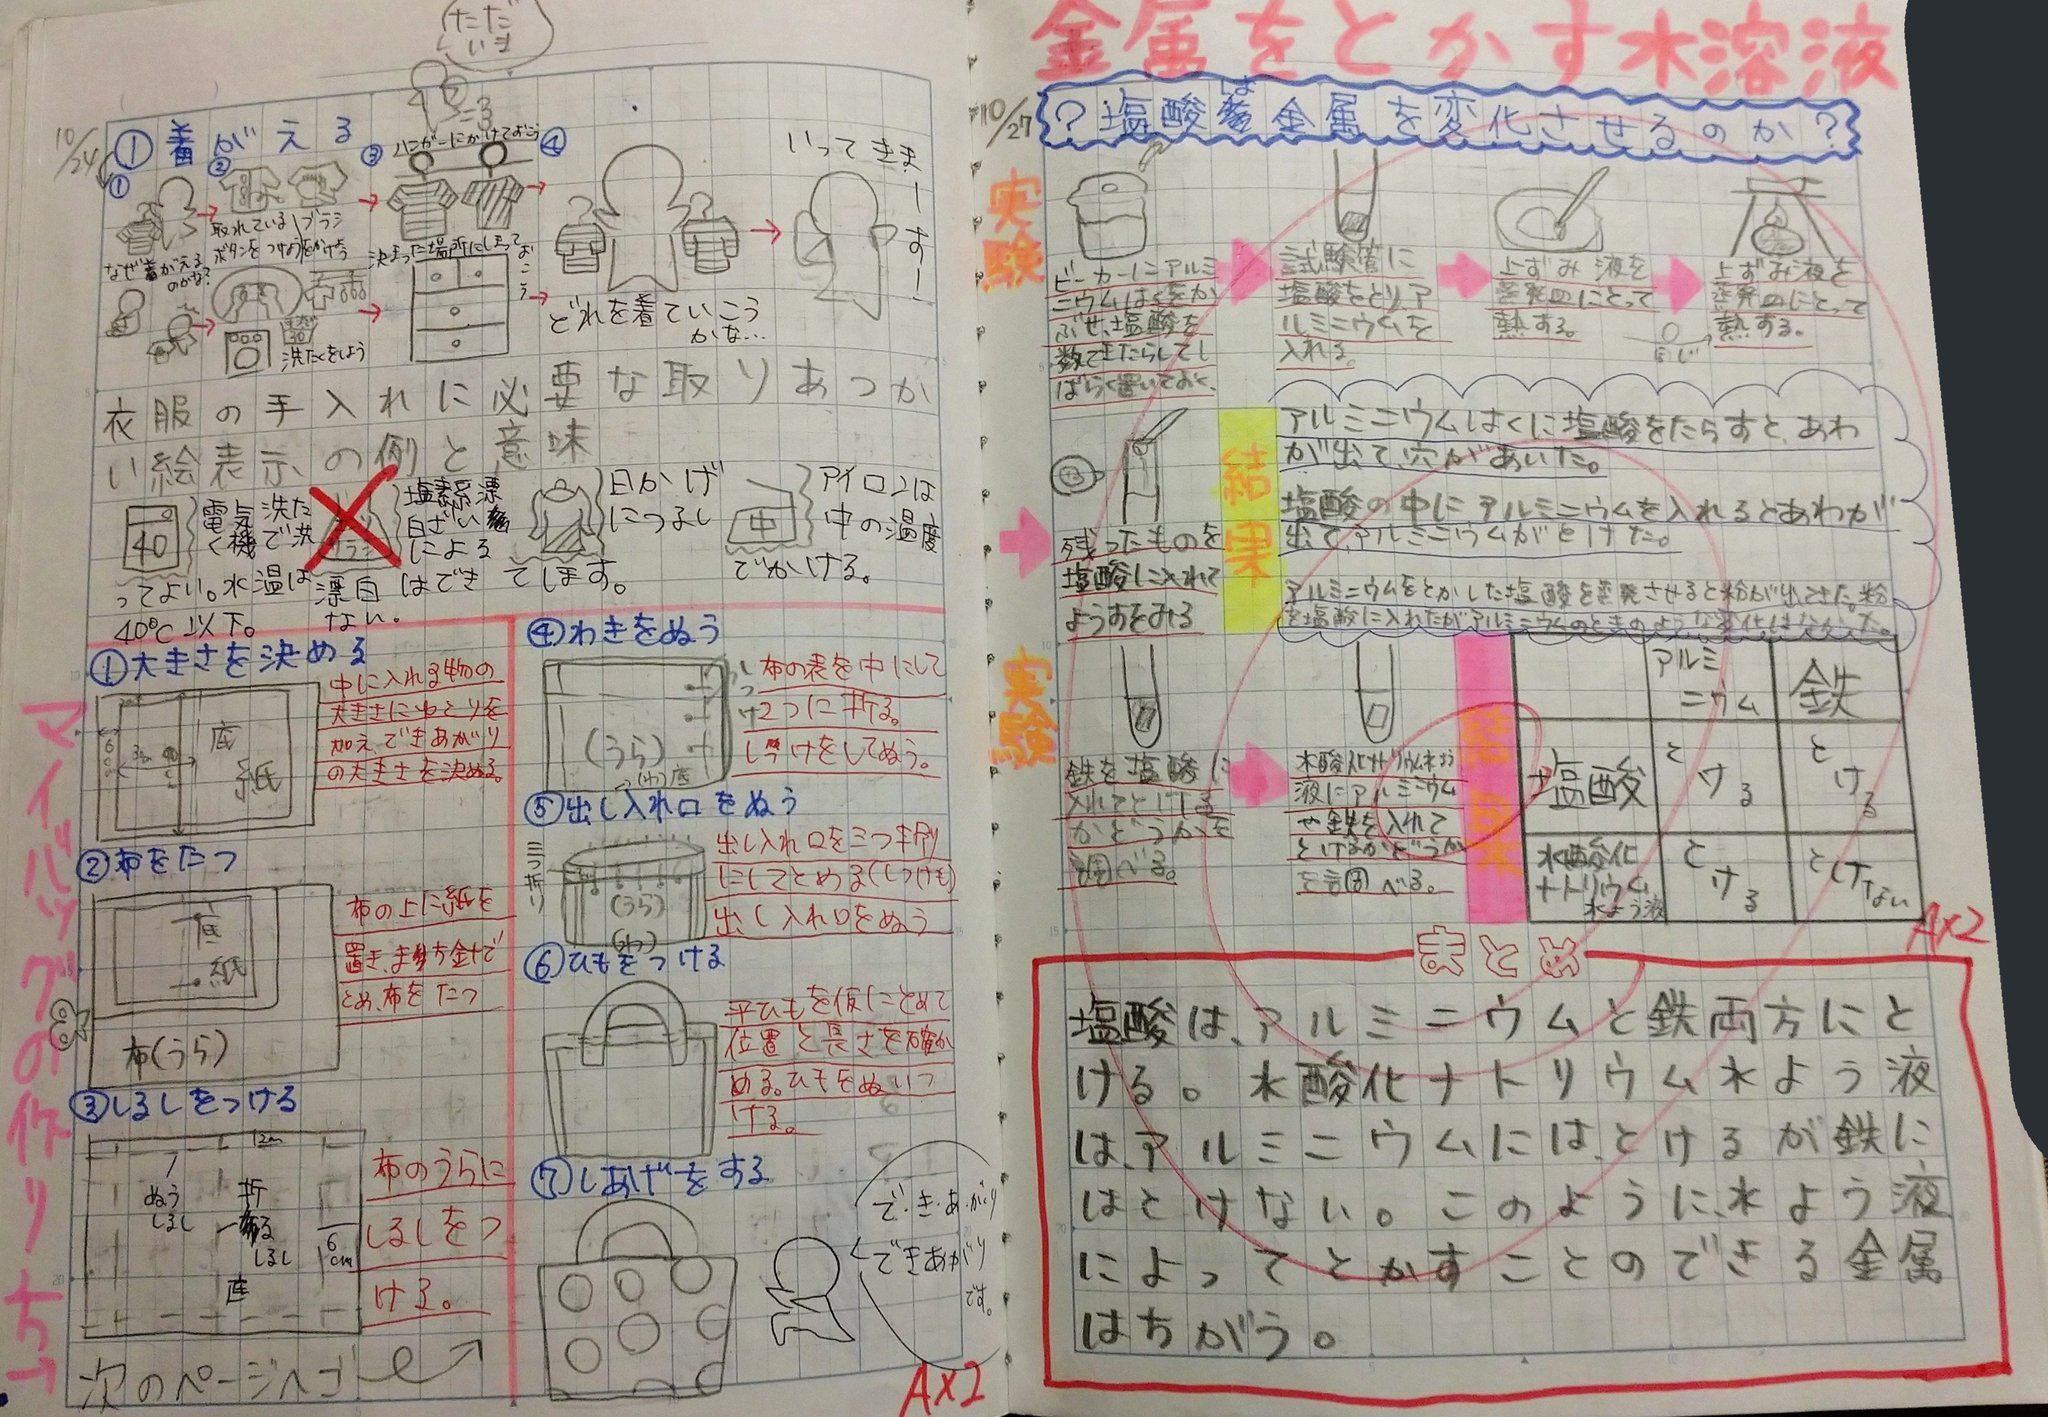 ただ
いま
10/24
①着がえる
①
②
③
④
ハンガーにかけておこう
取れている
ボタンをつけよう
ブラシ
をかけよう
なぜ着がえる
のかな?
決まった場所にしまって
おこう
洗たくをしよう
どれを着ていこう
かな…
いってきまーーす!
衣服の手入れに必要な取りあつか
い絵表示の例と意味
40
電気洗た
く機で洗
ってよい。水温は
40℃以下。
塩素系漂
白ざい
による
漂白はでき
ない。
日かげ
につるし
てします。
中
アイロンは
中の温度
でかける。
マイバッグの作り方
①大きさを決める
底
紙
中に入れる物の
大きさにゆとりを
加え、できあがり
の大きさを決める。
②布をたつ
底
紙
布(うら)
布の上に紙を
置き、まち針で
とめ、布をたつ
③しるしをつける
12cm
ぬう
しるし
折
る
しるし
6
cm
底
布のうらに
しるしをつ
ける。
次のページへゴー
④わきをぬう
しつけ
(うら)
(わ)底
布の表を中にして
2つに折る。
しつけをしてぬう。
⑤出し入れ口をぬう
三つ折り
(うら)
(わ)
出し入れ口を三つ折り
にしてとめる(しつけも)
出し入れ口をぬう
⑥ひもをつける
平ひもを仮にとめて
位置と長さを確か
める。ひもをぬいつ
ける。
⑦しあげをする
で・き・あ・が・り
できあがり
です。
A×2
金属をとかす水溶液
10/27
?塩酸は金属を変化させるのか?
実験
ビーカーにアルミ
ニウムはくをか
ぶせ、塩酸を
数てきたらしてし
ばらく置いておく。
試験管に
塩酸をとり、ア
ルミニウムを
入れる。
上ずみ液を
蒸発皿にとって
熱する。
同じ
上ずみ液を
蒸発皿にとって
熱する。
残ったものを
塩酸に入れて
ようすをみる
結果
アルミニウムはくに塩酸をたらすと、あわ
が出て、穴があいた。
塩酸の中にアルミニウムを入れるとあわが
出て、アルミニウムがとけた。
アルミニウムをとかした塩酸を蒸発させると粉が出てきた。粉
を塩酸に入れたがアルミニウムのときのような変化はなかった。
実験
鉄を塩酸に
入れてとける
かどうかを
調べる。
水酸化ナトリウム水よう
液にアルミニウム
や鉄を入れて
とけるかどうか
を調べる。
結果
アルミ
ニウム
鉄
塩酸
とける
とける
水酸化
ナトリウム
水よう液
とける
とけない
A×2
まとめ
塩酸は、アルミニウムと鉄両方にと
ける。水酸化ナトリウム水よう液
は、アルミニウムには、とけるが鉄に
はとけない。このように、水よう液
によってとかすことのできる金属
はちがう。